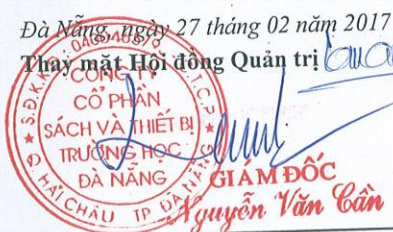 Đà Nẵng, ngày 27 tháng 02 năm 2017
Thay mặt Hội đồng Quản trị
CÔNG TY
CỔ PHẦN
SÁCH VÀ THIẾT BỊ
TRƯỜNG HỌC
ĐÀ NẴNG
Q. HẢI CHÂU TP ĐÀ NẴNG
GIÁM ĐỐC
Nguyễn Văn Cần